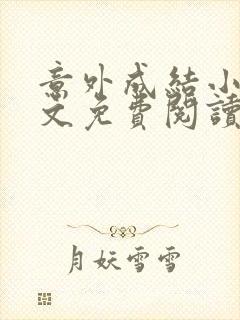 意外成結小
文免費閱讀
月妖雪雪